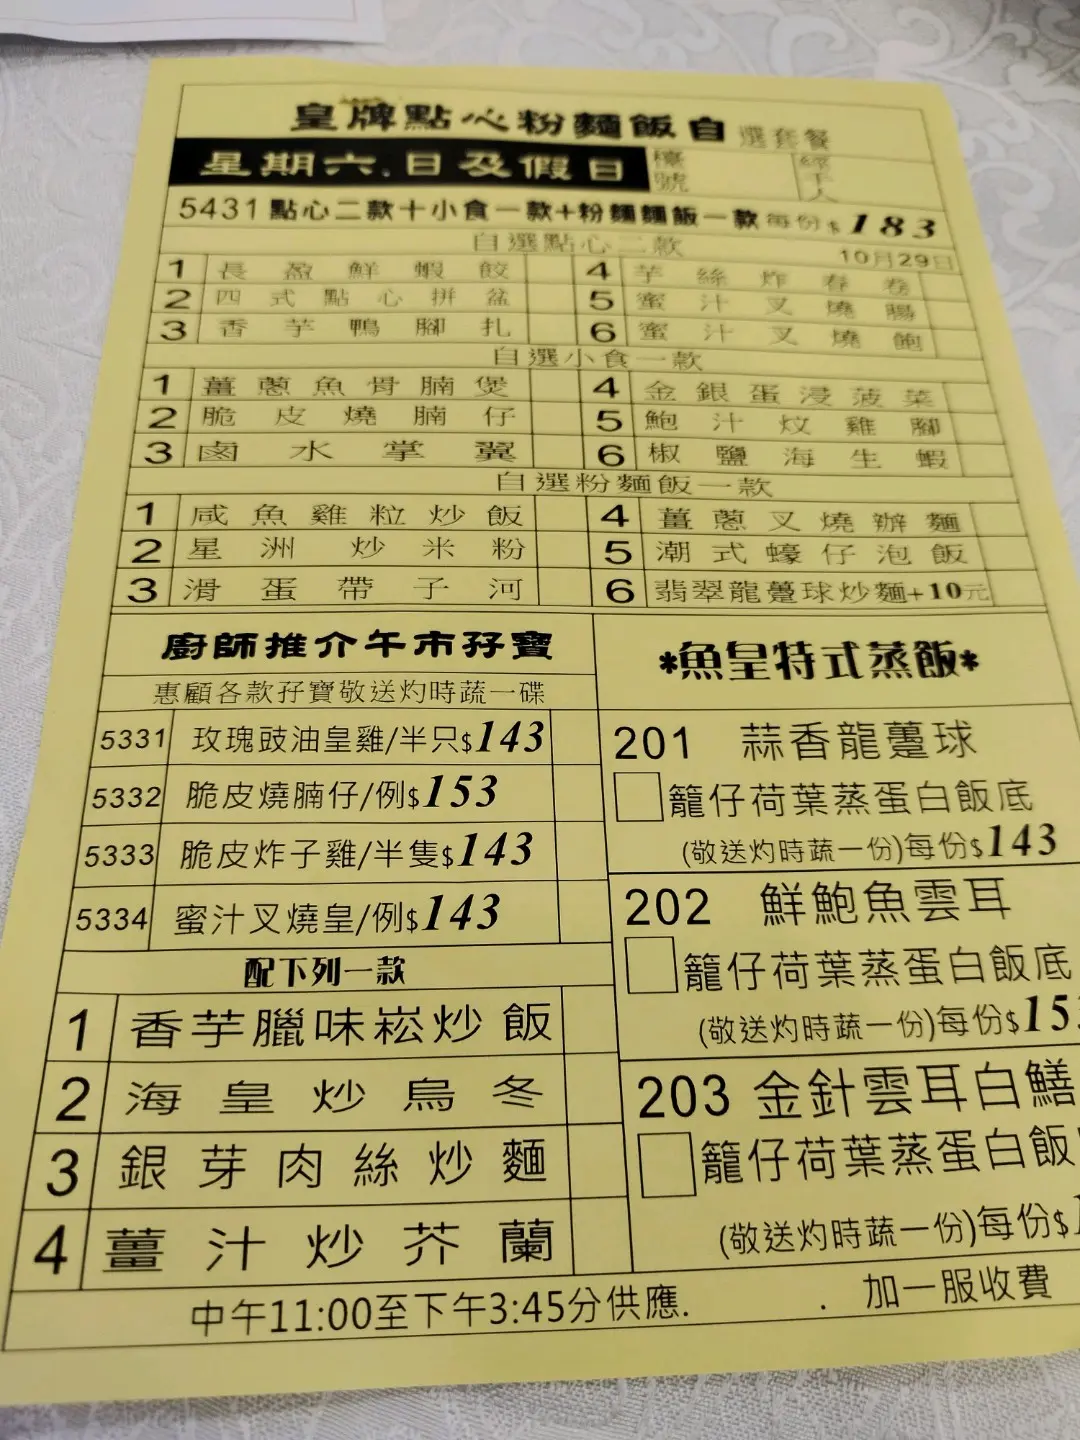 皇牌點心粉麵飯自選套餐
星期六.日及假日 檯號 經手人
5431點心二款十小食一款+粉麵麵飯一款每份$183
自選點心二款 10月29日
1 長盈鮮蝦餃 4 芋絲炸春卷
2 四式點心拼盆 5 蜜汁叉燒腸
3 香芋鴨腳扎 6 蜜汁叉燒飽
自選小食一款
1 薑蔥魚骨腩煲 4 金銀蛋浸菠菜
2 脆皮燒腩仔 5 鮑汁炆雞腳
3 鹵水掌翼 6 椒鹽海生蝦
自選粉麵飯一款
1 咸魚雞粒炒飯 4 薑蔥叉燒辦麵
2 星洲炒米粉 5 潮式蠔仔泡飯
3 滑蛋帶子河 6 翡翠龍躉球炒麵+10元
廚師推介午市孖寶
惠顧各款孖寶敬送灼時蔬一碟
5331 玫瑰豉油皇雞/半只$143
5332 脆皮燒腩仔/例$153
5333 脆皮炸子雞/半隻$143
5334 蜜汁叉燒皇/例$143
配下列一款
1 香芋臘味崧炒飯
2 海皇炒烏冬
3 銀芽肉絲炒麵
4 薑汁炒芥蘭
*魚皇特式蒸飯*
201 蒜香龍躉球
籠仔荷葉蒸蛋白飯底
(敬送灼時蔬一份)每份$143
202 鮮鮑魚雲耳
籠仔荷葉蒸蛋白飯底
(敬送灼時蔬一份)每份$15
203 金針雲耳白鱔
籠仔荷葉蒸蛋白飯
(敬送灼時蔬一份)每份$
中午11:00至下午3:45分供應. . 加一服收費